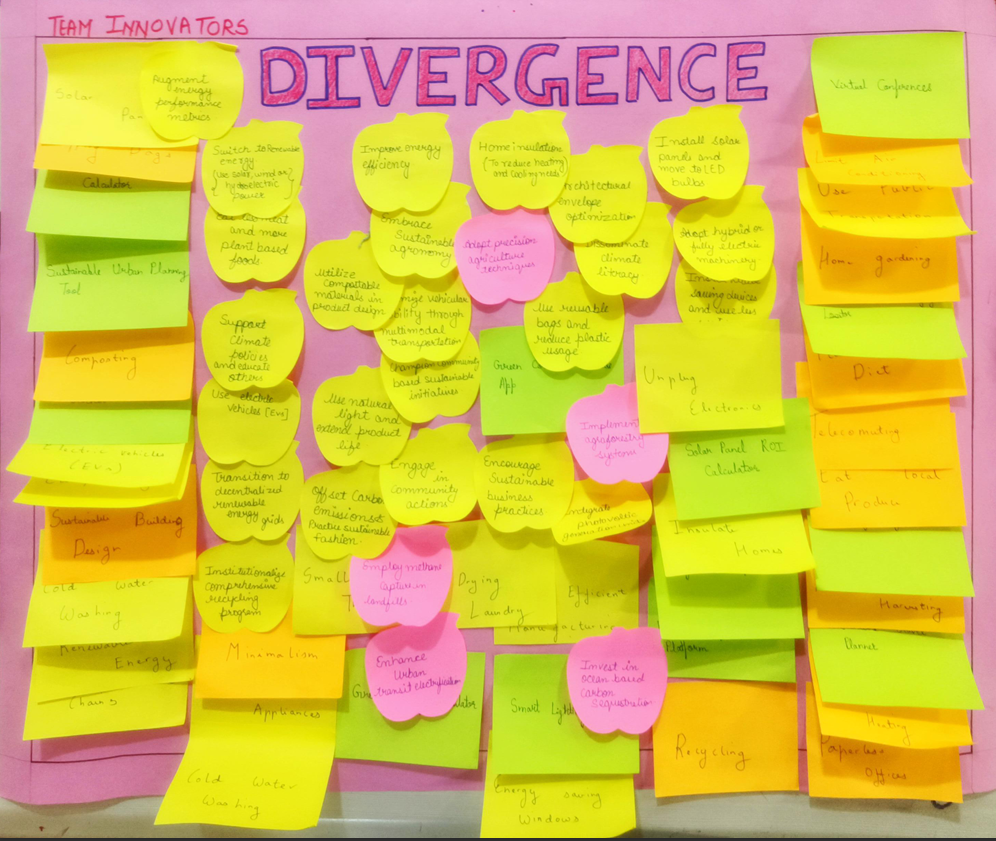 TEAM INNOVATORS
DIVERGENCE
Solar
Augment
energy
performance
metrics
Calculator
Sustainable Urban Planning
Tool
Composting
Electric Vehicles
(EVs)
Sustainable Building
Design
Cold Water
Washing
Renewable
Energy
Chains
Switch to Renewable
energy
(use solar, wind, or
hydroelectric
power
and more
plant based
foods
Support
Climate
policies
and educate
others
Use electric
vehicles [EVs]
Transition to
decentralized
renewable
energy grids
Institutionalize
comprehensive
recycling
program
Minimalism
Appliances
Cold Water
Washing
Improve energy
efficiency
Embrace
Sustainable
agronomy
Utilize
compostable
materials in
product design
vehicular
through
multimodal
transportation
Champion community
based sustainable
initiatives
Use natural
light and
extend product
life
Offset Carbon
emissions
Practice sustainable
fashion.
Engage
in
community
action
Small
Employ methane
capture in
landfills
Enhance
Urban
transit electrification
Home insulation
(To reduce heating
and cooling needs
Architectural
envelope
optimization
Adopt precision
agriculture
techniques
climate
literacy
Use reusable
bags and
reduce plastic
usage
Green
App
Encourage
Sustainable
business
practices
Implement
agroforestry
systems
Integrate
photovoltaic
Drying
Laundry
Efficient
Manufacturing
Smart
Invest in
ocean based
Carbon
sequestration
Energy saving
Windows
Install solar
panels and
move to LED
bulbs
Adopt hybrid or
fully electric
machinery
saving devices
and use less
Unplug
Electronics
Solar Panel ROI
Calculator
Insulate
Homes
Platform
Recycling
Virtual Conferences
Air
Use Public
Home gardening
Diet
Telecomuting
Eat Local
Produce
Harvesting
Planner
Heating
Paperless
Offices